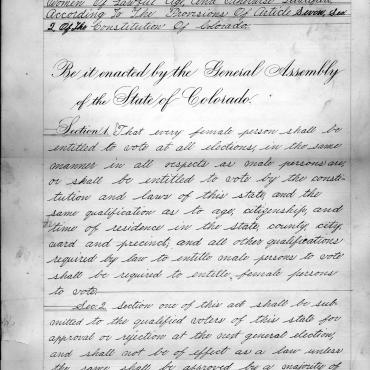 Women Of Lawful Age, And Otherwise Qualified
According To The Provisions Of Article Seven, Sec
2 Of The Constitution Of Colorado.
Be it enacted by the General Assembly
of the State of Colorado:
Section 1. That every female person shall be
entitled to vote at all elections, in the same
manner in all respects as male persons are,
or shall be entitled to vote by the consti-
tution and laws of this state, and the
same qualification as to age, citizenship, and
time of residence in the state, county, city,
ward and precinct, and all other qualifications
required by law to entitle male persons to vote
shall be required to entitle female persons
to vote.
Sec. 2. Section one of this act shall be sub-
mitted to the qualified voters of this state for
approval or rejection at the next general election,
and shall not be of effect as a law unless
the same shall be approved by a majority of